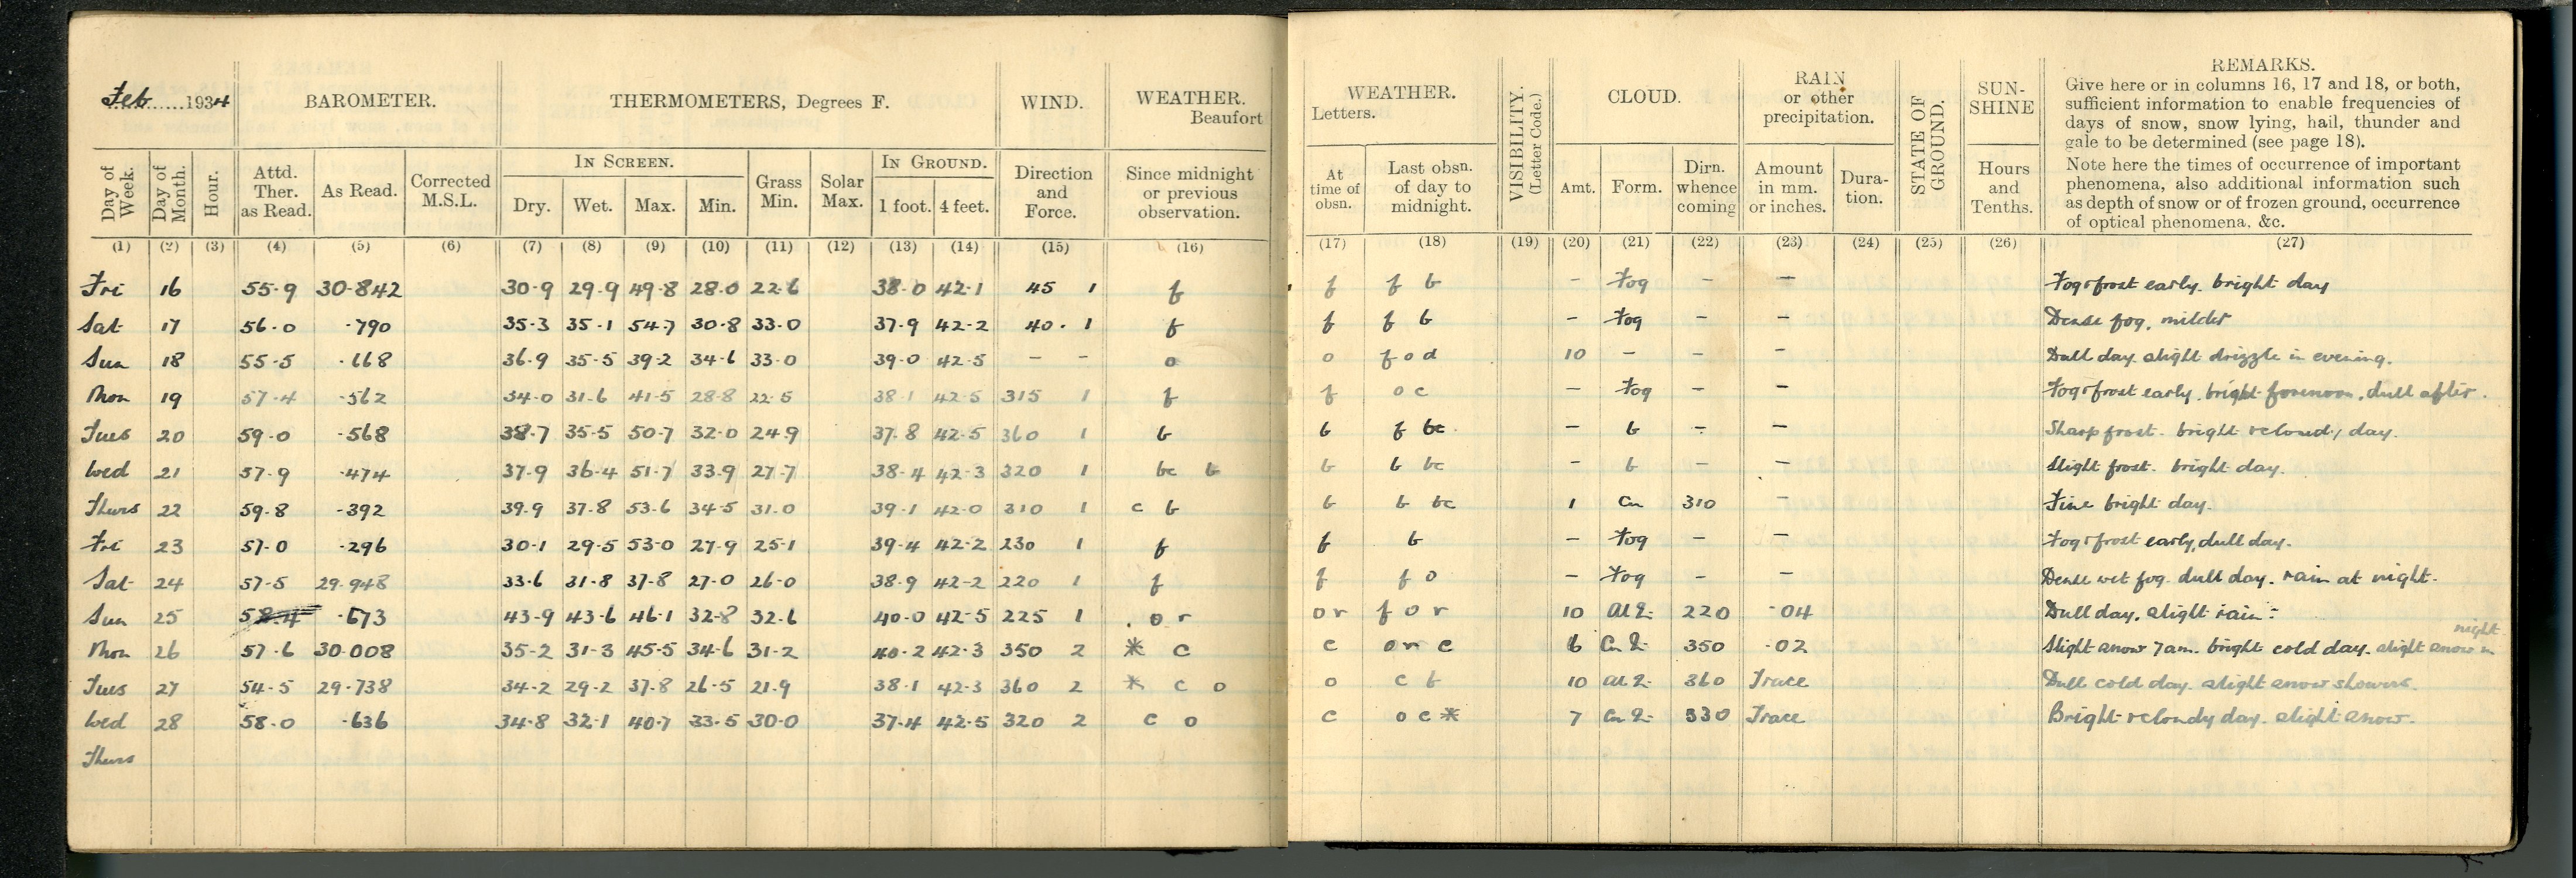 Feb 1934
BAROMETER. THERMOMETERS, Degrees F. WIND. WEATHER. Beaufort
Day of Week. Day of Month. Hour. Attd. Ther. as Read. As Read. Corrected M.S.L. IN SCREEN. Dry. Wet. Max. Min. Grass Min. Solar Max. IN GROUND. 1 foot. 4 feet. Direction and Force. Since midnight or previous observation.
(1) (2) (3) (4) (5) (6) (7) (8) (9) (10) (11) (12) (13) (14) (15) (16)
Fri 16 55.9 30.842 30.9 29.9 49.8 28.0 22.6 38.0 42.1 45 1 f
Sat 17 56.0 .790 35.3 35.1 54.7 30.8 33.0 37.9 42.2 40. 1 f
Sun 18 55.5 .668 36.9 35.5 39.2 34.6 33.0 39.0 42.5 – – o
Mon 19 57.4 .562 34.0 31.6 41.5 28.8 22.5 38.1 42.5 315 1 f
Tues 20 59.0 .568 38.7 35.5 50.7 32.0 24.9 37.8 42.5 360 1 b
Wed 21 57.9 .474 37.9 36.4 51.7 33.9 27.7 38.4 42.3 320 1 bc b
Thurs 22 59.8 .392 39.9 37.8 53.6 34.5 31.0 39.1 42.0 310 1 c b
Fri 23 57.0 .296 30.1 29.5 53.0 27.9 25.1 39.4 42.2 230 1 f
Sat 24 57.5 29.948 33.6 31.8 37.8 27.0 26.0 38.9 42.2 220 1 f
Sun 25 .673 43.9 43.6 46.1 32.8 32.6 40.0 42.5 225 1 . o r
Mon 26 57.6 30.008 35.2 31.3 45.5 34.6 31.2 40.2 42.3 350 2 * c
Tues 27 54.5 29.738 34.2 29.2 37.8 26.5 21.9 38.1 42.3 360 2 * c o
Wed 28 58.0 .636 34.8 32.1 40.7 33.5 30.0 37.4 42.5 320 2 c o
Thurs
WEATHER. Letters. VISIBILITY. (Letter Code.) CLOUD. RAIN or other precipitation. STATE OF GROUND. SUN-SHINE REMARKS.
Give here or in columns 16, 17 and 18, or both,
sufficient information to enable frequencies of
days of snow, snow lying, hail, thunder and
gale to be determined (see page 18).
Note here the times of occurrence of important
phenomena, also additional information such
as depth of snow or of frozen ground, occurrence
of optical phenomena, &c.
At time of obsn. Last obsn. of day to midnight. Amt. Form. Dirn. whence coming Amount in mm. or inches. Dura-tion. Hours and Tenths.
(17) (18) (19) (20) (21) (22) (23) (24) (25) (26) (27)
f f b – Fog – – Fog & frost early. bright day
f f b – Fog – – Dense fog, milder
o f o d 10 – – – Dull day. slight drizzle in evening.
f o c – Fog – – Fog & frost early. bright forenoon, dull after.
b f bc – b – – Sharp frost. bright & cloudy day.
b b bc – b – – Slight frost. bright day.
b b bc 1 Cu 310 – Fine bright day.
f b – Fog – – Fog & frost early, dull day.
f f o – Fog – – Dense wet fog. dull day. rain at night.
o r f o r 10 220 .04 Dull day. slight rain.
c o r c 6 350 .02 Slight snow 7am. bright cold day. slight snow in night
o c b 10 360 Trace Dull cold day. slight snow showers.
c o c * 7 330 Trace Bright & cloudy day. slight snow.